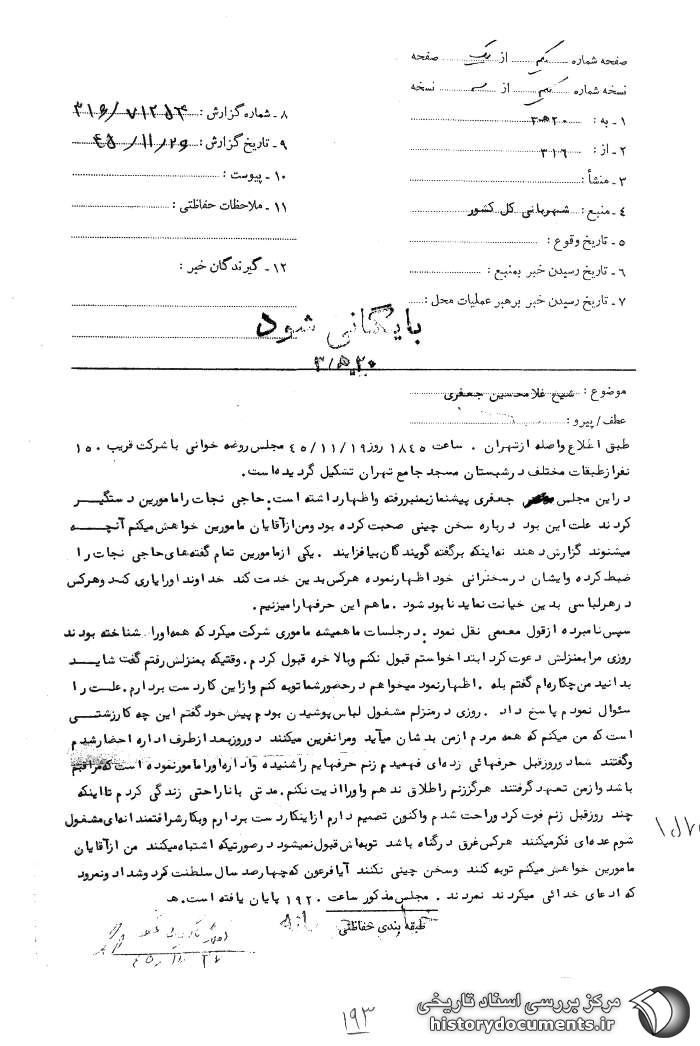 صفحه شماره یکم از یک صفحه
نسخه شماره یکم از نسخه
۱ ـ به : ۳۰۵۲۰
۲ ـ از : ۳۱۶
۳ ـ منشأ :
۴ ـ منبع : شهربانی کل کشور
۵ ـ تاریخ وقوع :
۶ ـ تاریخ رسیدن خبر بمنبع :
۷ ـ تاریخ رسیدن خبر برهبر عملیات محل :
۸ ـ شماره گزارش : ۳۱۶/۷۱۲۵۴
۹ ـ تاریخ گزارش : ۴۵/۱۱/۲۶
۱۰ ـ پیوست :
۱۱ ـ ملاحظات حفاظتی :
۱۲ ـ گیرندگان خبر :
بایگانی شود
موضوع : شیخ غلامحسین جعفری
عطف/پیرو :
طبق اطلاع واصله ازتهران . ساعت ۱۸۴۵ روز ۴۵/۱۱/۱۹ مجلس روضه خوانی با شرکت قریب ۱۵۰
نفرازطبقات مختلف درشبستان مسجد جامع تهران تشکیل گردیده است.
دراین مجلس جعفری پیشنمازبمنبررفته واظهارداشته است: حاجی نجات رامامورین دستگیر
کردند علت این بود درباره سخن چینی صحبت کرده بود ومن ازآقایان مامورین خواهش میکنم آنچه
میشنوند گزارش دهند نه اینکه برگفته گویندگان بیافزایند . یکی ازمامورین تمام گفته های حاجی نجات را
ضبط کرده وایشان درسخنرانی خود اظهارنموده هرکس بدین خدمت کند خداوند اورایاری کند وهرکس
درهرلباسی بدین خیانت نماید نابود شود . ماهم این حرفهارامیزنیم .
سپس نامبرده ازقول معممی نقل نمود : درجلسات ماهمیشه ماموری شرکت میکرد که همه اورا شناخته بودند
روزی مرابمنزلش دعوت کرد ابتدا خواستم قبول نکنم وبالاخره قبول کردم . وقتیکه بمنزلش رفتم گفت شاید
بدانید من چکاره ام گفتم بله . اظهارنمود میخواهم درحضورشما توبه کنم وازاین کاردست بردارم . علت را
سئوال نمودم پاسخ داد . روزی درمنزلم مشغول لباس پوشیدن بودم پیش خود گفتم این چه کارزشتی
است که من میکنم که همه مردم ازمن بدشان میآید ومرانفرین میکنند دوروزبعد ازطرف اداره احضارشدم
وگفتند شماد وروزقبل حرفهائی زده ای فهمیدم زنم حرفهایم راشنیده واداره اورامامورنموده است که مراقبم
باشد وازمن تعهد گرفتند هرگززنم راطلاق ندهم واورااذیت نکنم . مدتی باناراحتی زندگی کردم تااینکه
چند روزقبل زنم فوت کرد وراحت شدم واکنون تصمیم دارم ازاینکاردست بردارم وبکارشرافتمندانه ای مشغول
شوم عده ای فکرمیکنند هرکس غرق درگناه باشد توبه اش قبول نمیشود درصورتیکه اشتباه میکنند من ازآقایان
مامورین خواهش میکنم توبه کنند وسخن چینی نکنند آیافرعون که چهارصد سال سلطنت کرد وشداد ونمرود
که ادعای خدائی میکردند نمردند . مجلس مذکورساعت ۱۹۲۰ پایان یافته است. هـ
طبقه بندی حفاظتی
۱۹۳
مرکز بررسی اسناد تاریخی
historydocuments.ir